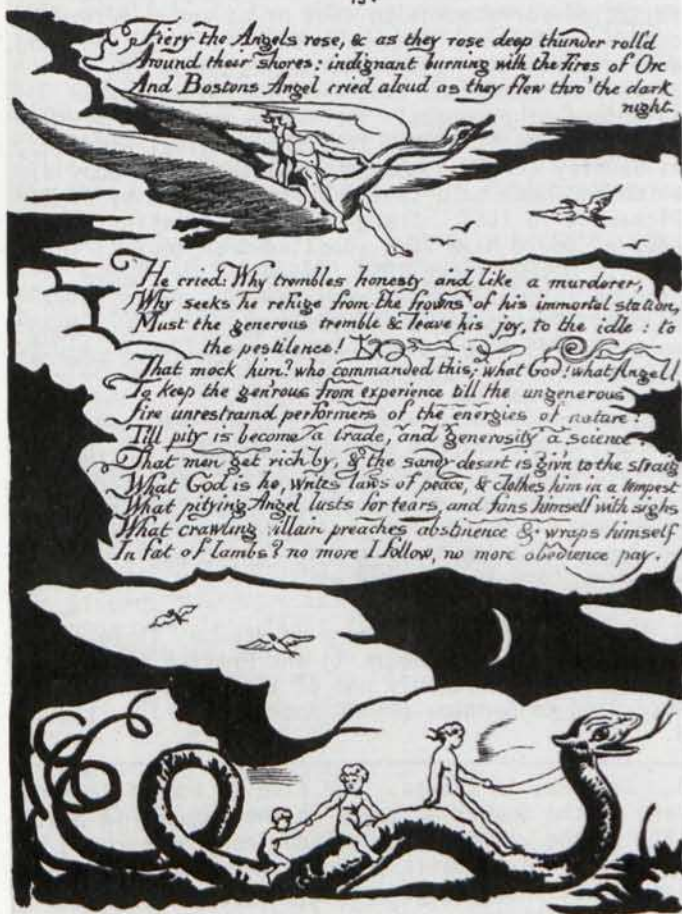 Fiery the Angels rose, & as they rose deep thunder roll'd
Around their shores: indignant burning with the fires of Orc
And Bostons Angel cried aloud as they flew thro' the dark
night.
He cried: Why trembles honesty and like a murderer,
Why seeks he refuge from the frowns of his immortal station,
Must the generous tremble & leave his joy, to the idle: to
the pestilence!
That mock him? who commanded this; what God! what Angel!
To keep the gen'rous from experience till the ungenerous
Are unrestrain'd performers of the energies of nature:
Till pity is become a trade, and generosity a science:
That men get rich by, & the sandy desart is giv'n to the strong
What God is he, writes laws of peace, & clothes him in a tempest
What pitying Angel lusts for tears, and fans himself with sighs
What crawling villain preaches abstinence & wraps himself
In fat of lambs? no more I follow, no more obedience pay.